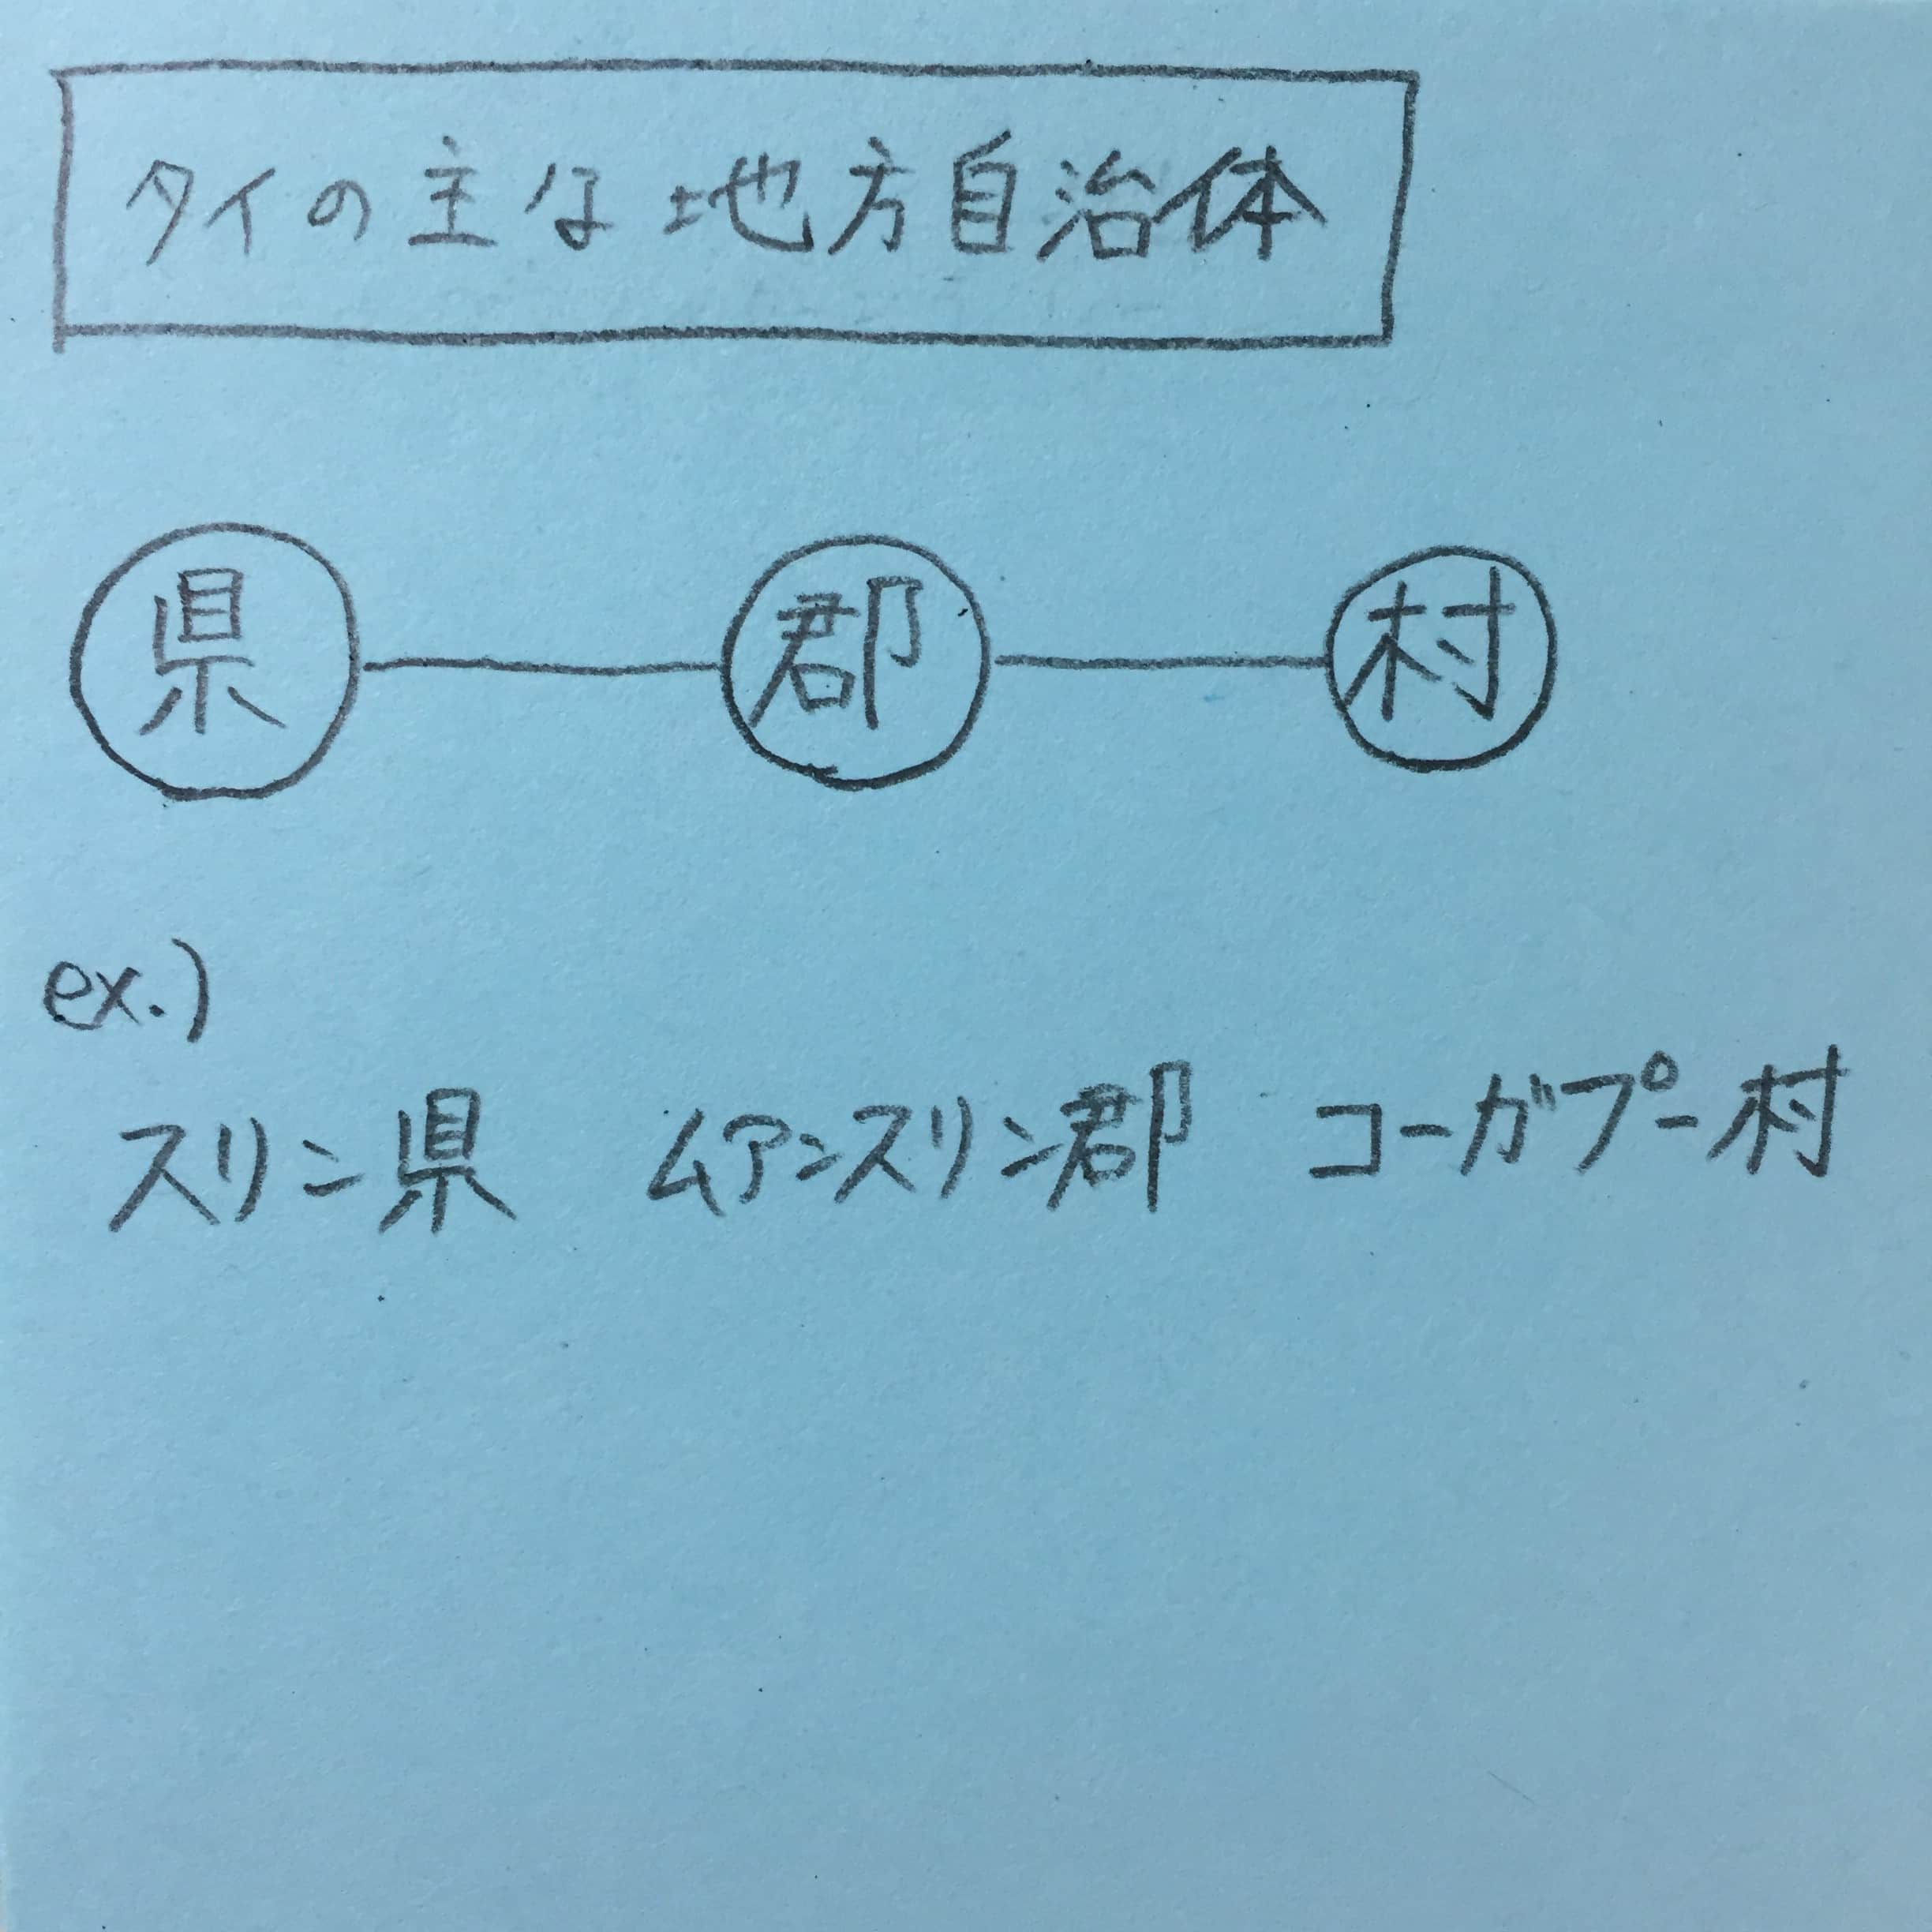 タイの主な地方自治体
県 郡 村
ex.)
スリン県 ムアンスリン郡 コーガプー村